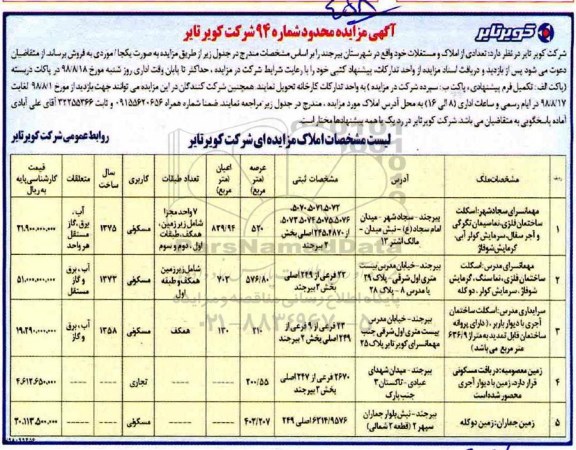 کویر تایر
آگهی مزایده محدود شماره ۹۴ شرکت کویر تایر
شرکت کویر تایر در نظر دارد: تعدادی از املاک و مستغلات خود واقع در شهرستان بیرجند را بر اساس مشخصات مندرج در جدول زیر از طریق مزایده به صورت یکجا/ موردی به فروش برساند. از متقاضیان
دعوت می شود پس از بازدید و دریافت اسناد مزایده از واحد تدارکات، پیشنهاد کتبی خود را با رعایت شرایط شرکت در مزایده، حداکثر تا پایان وقت اداری روز شنبه مورخ ۹۸/۸/۱۸ در پاکت دربسته
(پاکت الف: تکمیل فرم پیشنهادی، پاکت ب: سپرده شرکت در مزایده) به واحد تدارکات کارخانه تحویل نمایند. همچنین شرکت کنندگان در این مزایده می توانند جهت بازدید از مورخ ۹۸/۸/۱ لغایت
۹۸/۸/۱۷ در ایام رسمی و ساعات اداری (۸ الی ۱۶) به محل آدرس املاک مورد مزایده، مندرج در جدول زیر مراجعه نمایند. ضمنا شماره همراه ۰۹۱۵۵۶۲۰۶۵۶ و ثابت ۳۲۲۵۵۳۶۶ آقای علی آبادی
آماده پاسخگویی به متقاضیان می باشد. شرکت کویر تایر در رد یک یا همه پیشنهادها مختار است.
روابط عمومی شرکت کویر تایر
لیست مشخصات املاک مزایده ای شرکت کویر تایر
مشخصات ملک | آدرس | مشخصات ثبتی | عرصه (متر مربع) | اعیان (متر مربع) | تعداد طبقات | کاربری | سال ساخت | متعلقات | قیمت کارشناسی پایه به ریال
۱ | مهمانسرای سجادشهر: اسکلت ساختمان فلزی، نما سیمان تگرگی و آجر سفال، سرمایش کولر آبی، گرمایش شوفاژ | بیرجند - سجادشهر - میدان امام سجاد (ع) - نبش میدان - مالک اشتر ۱۳ | ۵۲۰ | ۸۳۹/۹۴ | ۷ واحد مجزا شامل زیرزمین، همکف، طبقات اول، دوم و سوم | مسکونی | ۱۳۷۵ | آب، برق، گاز مستقل هر واحد | ۳۱.۹۰۰.۰۰۰.۰۰۰
۲ | مهمانسرای مدرس: اسکلت ساختمان فلزی، نما سنگ، گرمایش شوفاژ، سرمایش کولر، دوکله | بیرجند - خیابان مدرس بیست متری اول شرقی - پلاک ۳۹ یا مدرس ۸ - پلاک ۲۸ | ۲۲ فرعی از ۲۴۹ اصلی بخش ۲ بیرجند | ۵۷۶/۸۰ | ۷۰۳ | شامل زیرزمین همکف و طبقه اول | مسکونی | ۱۳۷۳ | آب، برق و گاز مستقل | ۵۱.۰۰۰.۰۰۰.۰۰۰
۳ | سرایداری مدرس: اسکلت ساختمان آجری با دیوار باربر، (دارای پروانه ساختمان قابل تمدید به متراژ ۶۳۶/۹ متر مربع می باشد) | بیرجند - خیابان مدرس بیست متری اول شرقی جنب مهمانسرای کویر تایر پلاک ۲۵ | ۲۳ فرعی از ۹ فرعی از ۲۴۹ اصلی بخش ۲ بیرجند | ۲۱۰ | ۱۳۰ | همکف | مسکونی | ۱۳۵۸ | آب، برق و گاز | ۱۹.۲۹۰.۰۰۰.۰۰۰
۴ | زمین معصومیه: در بافت مسکونی قرار دارد، زمین با دیوار آجری محصور شده است | بیرجند - میدان شهدای عبادی - تاکستان ۳ جنب پارک | ۲۶۷۰ فرعی از ۲۴۷ اصلی بخش ۲ بیرجند | ۲۰۰/۵۵ | ---- | ---- | تجاری | ---- | ---- | ۴.۶۱۲.۶۵۰.۰۰۰
۵ | زمین جماران: زمین دوکله | بیرجند - نبش بلوار جماران سپهر ۲ (قطعه ۲ شمالی) | ۶۲۱۴/۹۵۷۶ اصلی ۲۴۹ | ۴۰۲/۲۰۷ | ---- | ---- | مسکونی | ---- | ---- | ۲۰.۱۱۳.۵۰۰.۰۰۰
ParsNamadData
۰۲۱-۸۸۳۴۹۶۷۰-۵